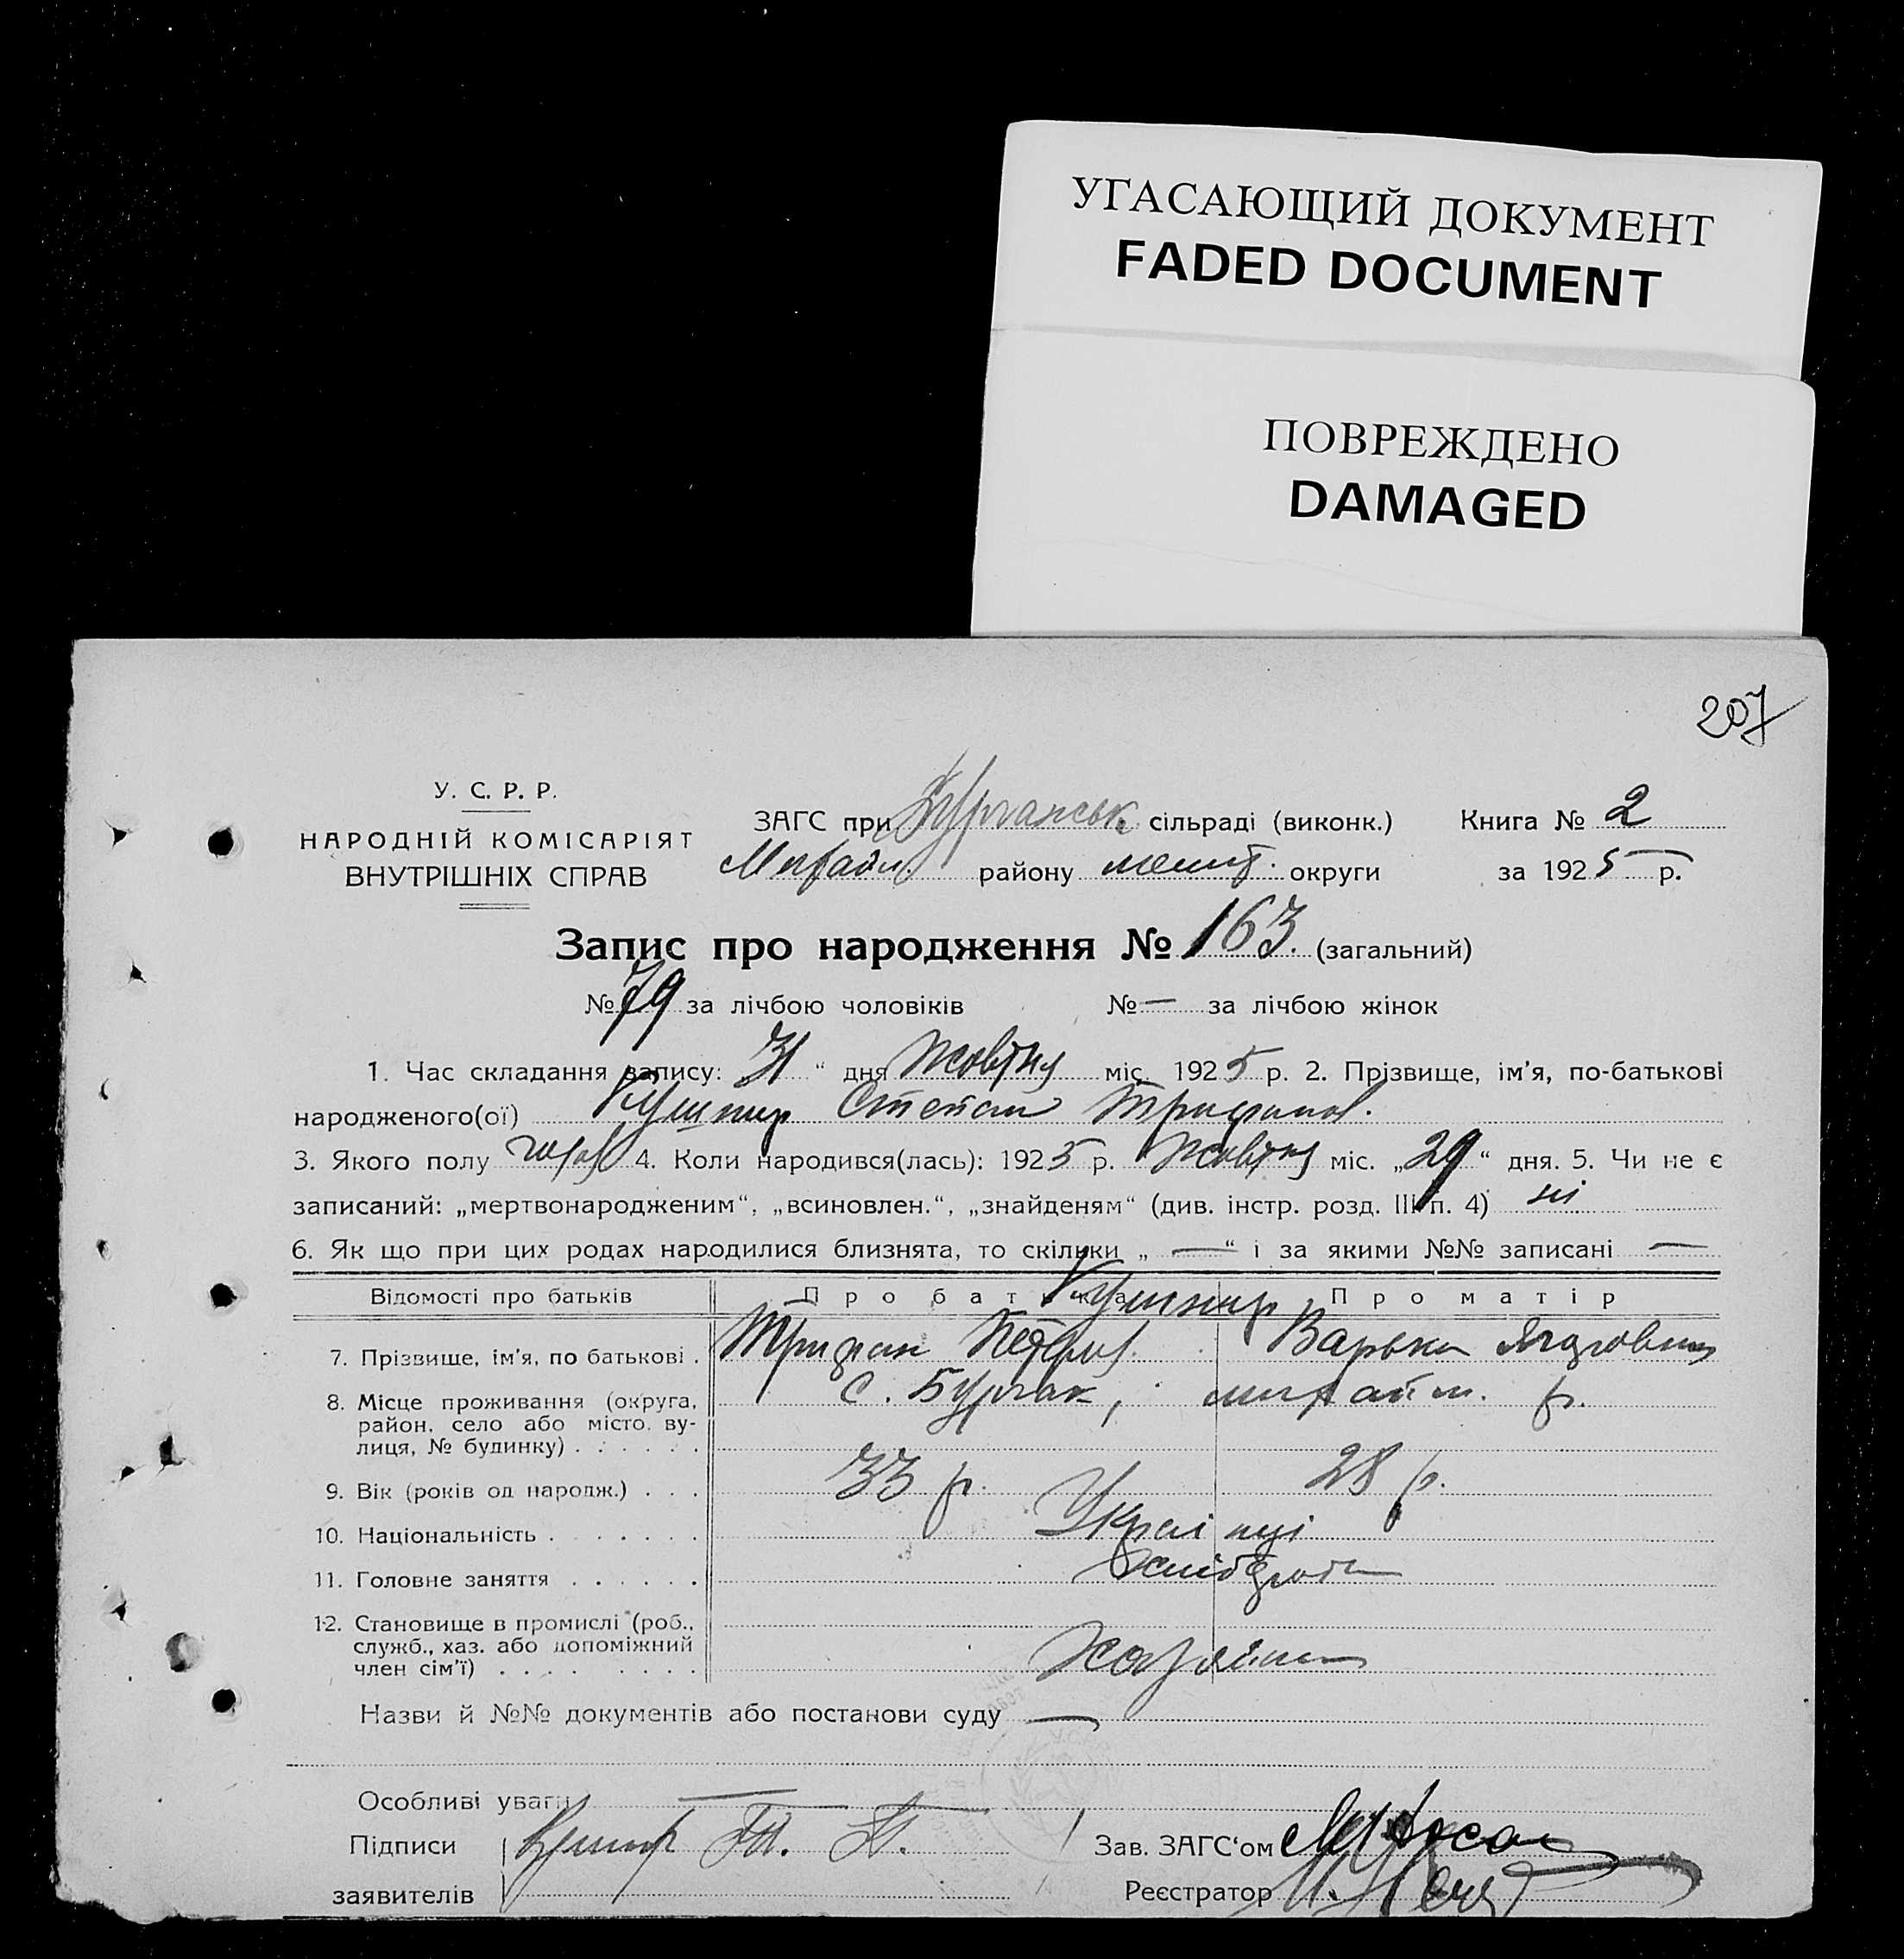 УГАСАЮЩИЙ ДОКУМЕНТ
FADED DOCUMENT
ПОВРЕЖДЕНО
DAMAGED
207
У. С. Р. Р.
НАРОДНІЙ КОМІСАРІЯТ
ВНУТРІШНІХ СПРАВ
ЗАГС при сільраді (виконк.) Книга № 2
району округи за 1925 р.
Запис про народження № 163. (загальний)
№ 79 за лічбою чоловіків № — за лічбою жінок
1. Час складання запису: 31 “ дня Жовтня міс. 1925 р. 2. Прізвище, ім'я, по-батькові
народженого(ої) Кушнир Степан Трифонов.
3. Якого полу 4. Коли народився(лась): 1925 р. Жовтня міс. „29“ дня. 5. Чи не є
записаний: „мертвонародженим“, „всиновлен.“, „знайденям“ (див. інстр. розд. III п. 4) ні
6. Як що при цих родах народилися близнята, то скільки „ — “ і за якими №№ записані —
Відомості про батьків Про батька Про матір
Кушнир
7. Прізвище, ім'я, по батькові . Трифан Петров. Варька
8. Місце проживання (округа, район, село або місто, вулиця, № будинку) . . . . . . с. Бурчак, р.
9. Вік (років од народж.) . . . 33 р. 28 р.
10. Національність . . . . . . . Українці
11. Головне заняття . . . . . . Хлібороби
12. Становище в промислі (роб., служб., хаз. або допоміжний член сім'ї) . . . . . . . . Хазяїни
Назви й №№ документів або постанови суду —
Особливі уваги —
Підписи Кушнир Т. П. Зав. ЗАГС‘ом
заявителів Реєстратор